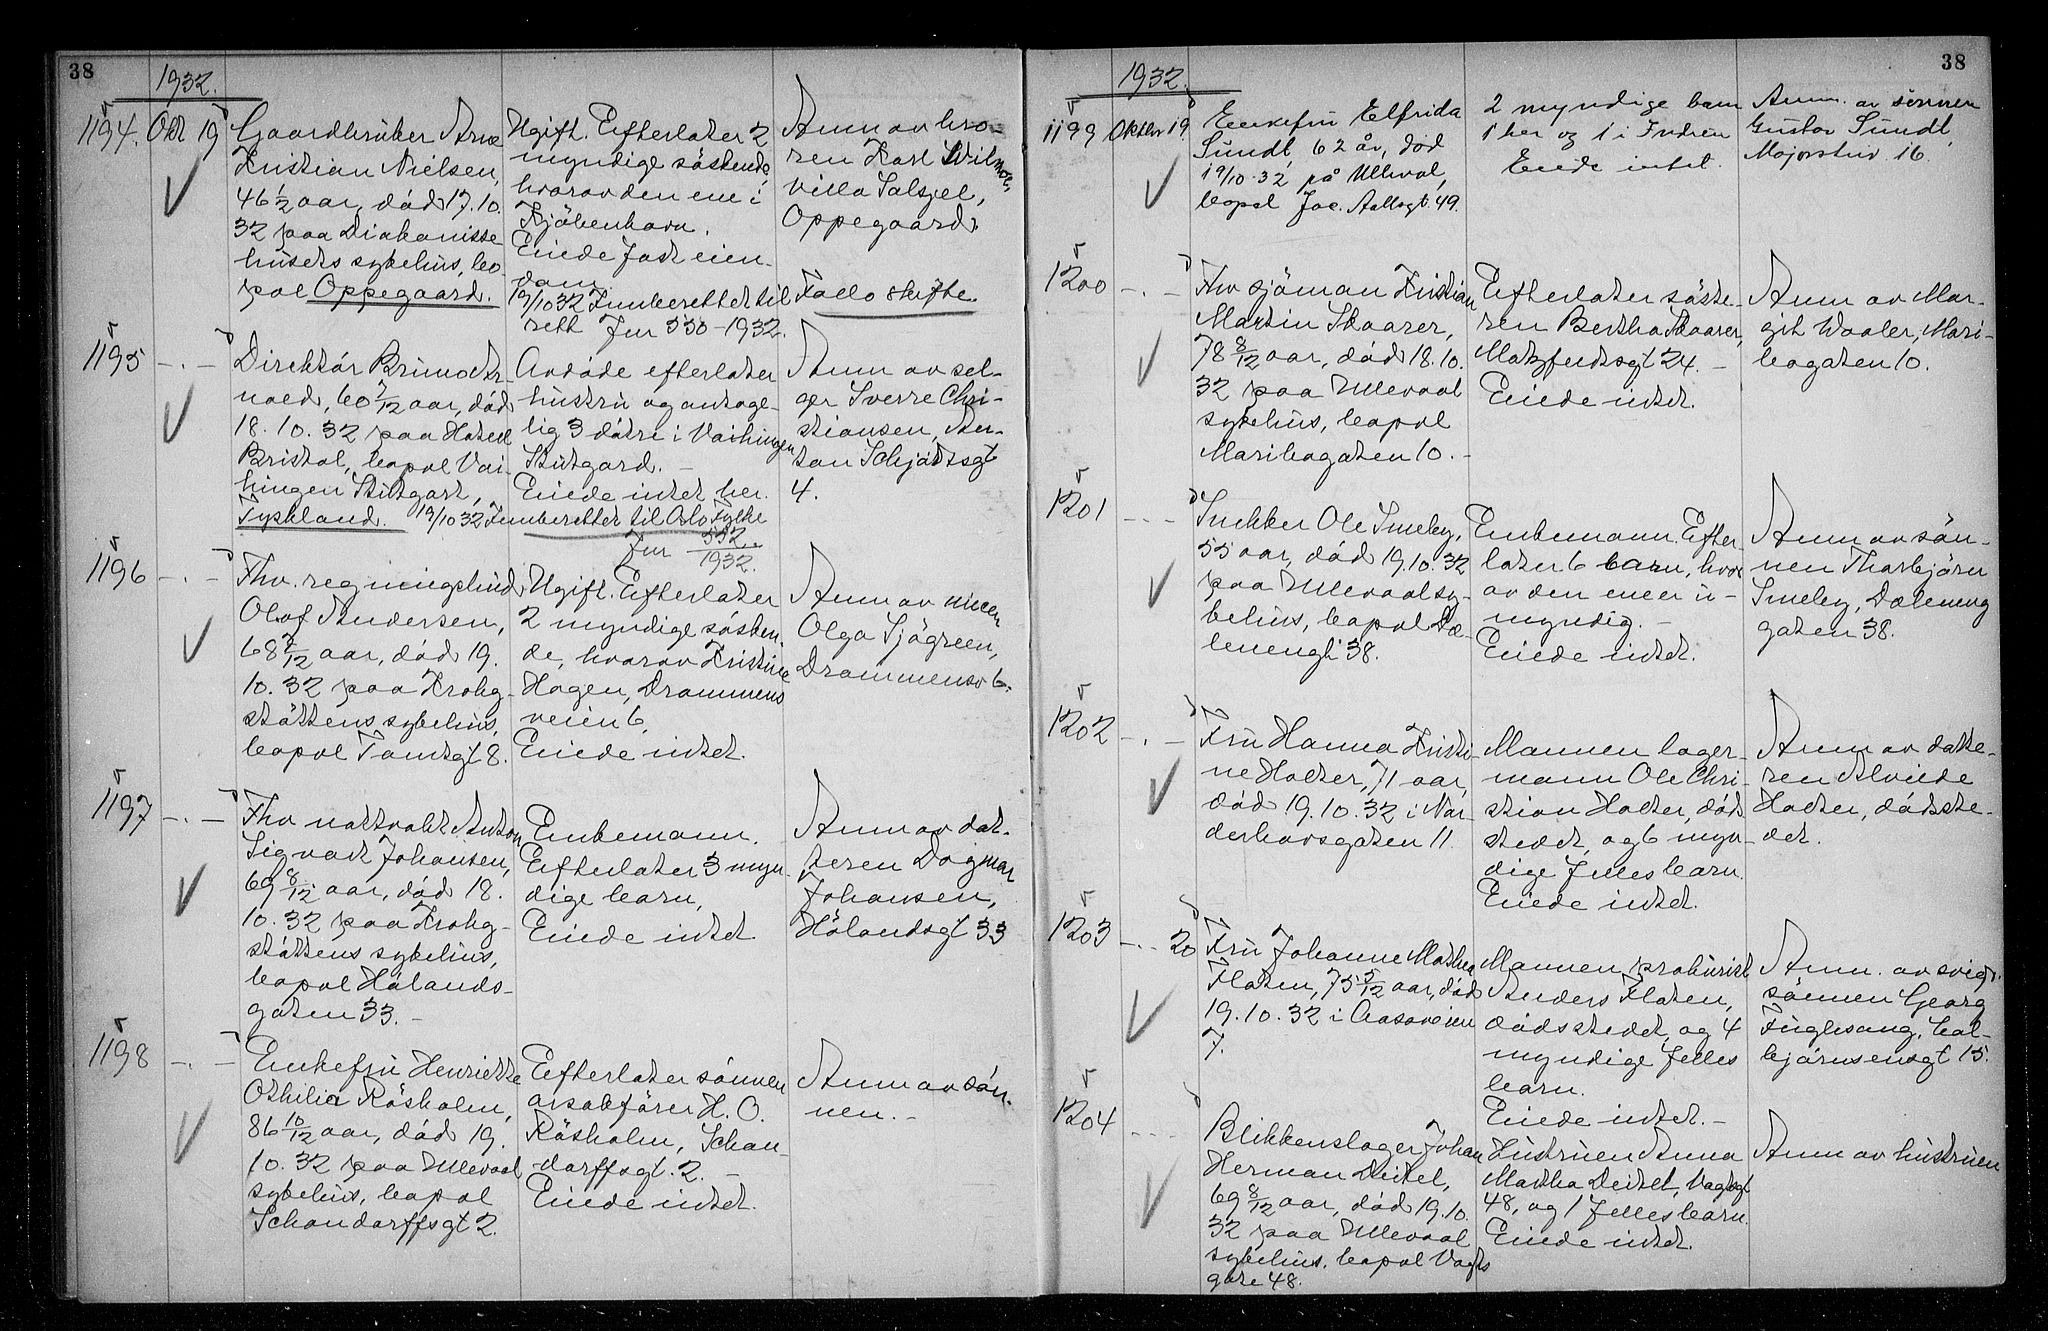 38
1932.
1194. Okt 19
Gaardbruker Arne
Kristian Nielsen,
46 1/2 aar, död 17.10.
32 paa Diakonisse
husets sykehus, bo-
pæl Oppegaard.
Ugift. Efterlater 2
myndige söskende
hvorav den ene i
Kjöbenhavn.
Eiede fast eien-
dom.
19/10 32 Innberettet til
rett Jnr 550-1932.
Anm av bro-
ren Karl
villa Solgjel,
Oppegaard.
Follo skifte.
1195 -.-
Direktör Bruno Ar-
nold, 60 /12 aar, död
18.10.32 paa Hotell
Bristol, bopæl Vai-
hingen Stutgart,
Tyskland.
Avdöde efterlater
hustru og antage-
lig 3 dötre i Vaihingen
Stutgard. -
Eiede intet her.
19/10 32 Innberettet til Oslo Fylke
Jnr 552/1932.
Anm av sel-
ger Sverre Chri-
stiansen, An-
ton Schjötsgt
4.
1196 -.-
Fhv. regningsbud
Olaf Andersen,
68 /12 aar, död 19.
10.32 paa Krohg-
støttens sykehus,
bopæl Tomtegt 8.
Ugift. Efterlater
2 myndige sösken
de, hvorav Kristine
Hagen, Drammens
veien 6.
Eiede intet.
Anm av niecen
Olga Sjögreen,
Drammensv 6.
1197 -.-
Fhv nattvakt Anton
Sigvart Johansen,
69 8/12 aar, död 18.
10.32 paa Krohg-
støttens sykehus,
bopæl Hölands-
gaten 33. -
Enkemann.
Efterlater 3 myn-
dige barn,
Eiede intet
Anm av dat-
teren Dagmar
Johansen,
Hölandsgt 33
1198 -.-
Enkefru Henriette
Othilia Rösholm,
86 10/12 aar, död 19.
10.32 paa Ullevaal
sykehus, bopæl
Schandorffsgt 2.
Efterlater sönnen
avsakförer H. O.
Rösholm, Schan-
dorffsgt. 2. -
Eiede intet.
Anm av sön-
nen. -
38
1932.
1199 Oktbr 19.
Enkefru Elfrida
Sundt, 62 år, död
19/10-32 på Ulleval,
bopæl Jac. Aallsgt. 49.
2 myndige barn
1 her og 1 i Indien
Eiede intet.
Anm. av sönnen
Gustav Sundt,
Majorstuv. 16.
1200 -.-
Fhv sjöman Kristian
Martin Skaarer,
78 8/12 aar, död 18.10.
32 paa Ullevaal
sykehus, bopæl
Maribogaten 10. -
Efterlater söste-
ren Bertha Skaarer,
Matzfeltsgt 24. -
Eiede intet.
Anm av Mar-
git Waaler, Mari-
bogaten 10.
1201 -.-
Snekker Ole Smeby,
55 aar, död 19.10.32
paa Ullevaal sy-
kehus, bopæl Dæ-
lenengt 38.
Enkemann. Efter-
later 6 barn, hvor
av den ene er u-
myndig. -
Eiede intet.
Anm av sön-
nen Thorbjörn
Smeby, Dæleneng
gaten 38.
1202 -.-
Fru Hanna Kristi-
ne Holter, 71 aar,
död 19.10.32 i Nor-
derhovsgaten 11.
Mannen lager-
mann Ole Chri-
stian Holter, död-
stedet, og 6 myn-
dige felles barn.
Eiede intet.
Anm av datte-
ren Alvilde
Holter, dödste-
det.
1203 -.- 20
Fru Johanne Mathea
Flaten, 75 5/12 aar, död
19.10.32 i Aasaveien
7.
Mannen, prokurist
Anders Flaten,
dödsstedet, og 4
myndige felles
barn.
Eiede intet. -
Anm. av svige-
sönnen Georg
Fuglesang, Col-
björnsensgt 15.
1204 -.-
Blikkenslager Johan
Herman Deitel,
69 8/12 aar, död 19.10.
32 paa Ullevaal
sykehus, bopæl Vogts
gate 48.
Hustruen Anna
Martha Deitel, Vogtsgt
48, og 1 felles barn.
Eiede intet.
Anm av hustruen